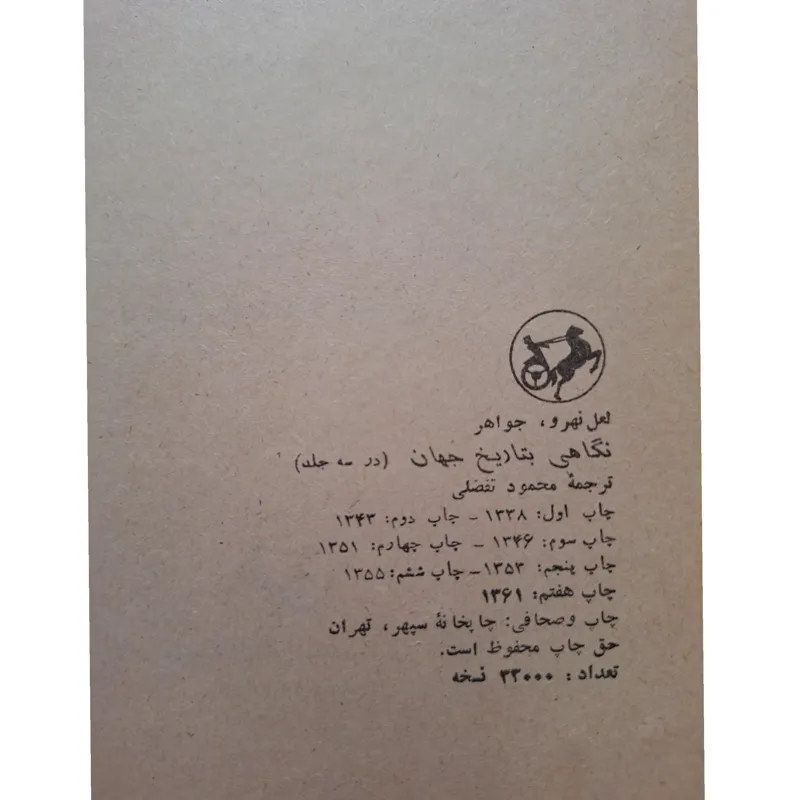 لعل نهرو، جواهر
نگاهی بتاریخ جهان (در سه جلد)
ترجمهٔ محمود تفضلی
چاپ اول: ۱۳۳۸ – چاپ دوم: ۱۳۴۳
چاپ سوم: ۱۳۴۶ – چاپ چهارم: ۱۳۵۱
چاپ پنجم: ۱۳۵۳ – چاپ ششم: ۱۳۵۵
چاپ هفتم: ۱۳۶۱
چاپ وصحافی: چاپخانهٔ سپهر، تهران
حق چاپ محفوظ است.
تعداد: ۳۳۰۰۰ نسخه